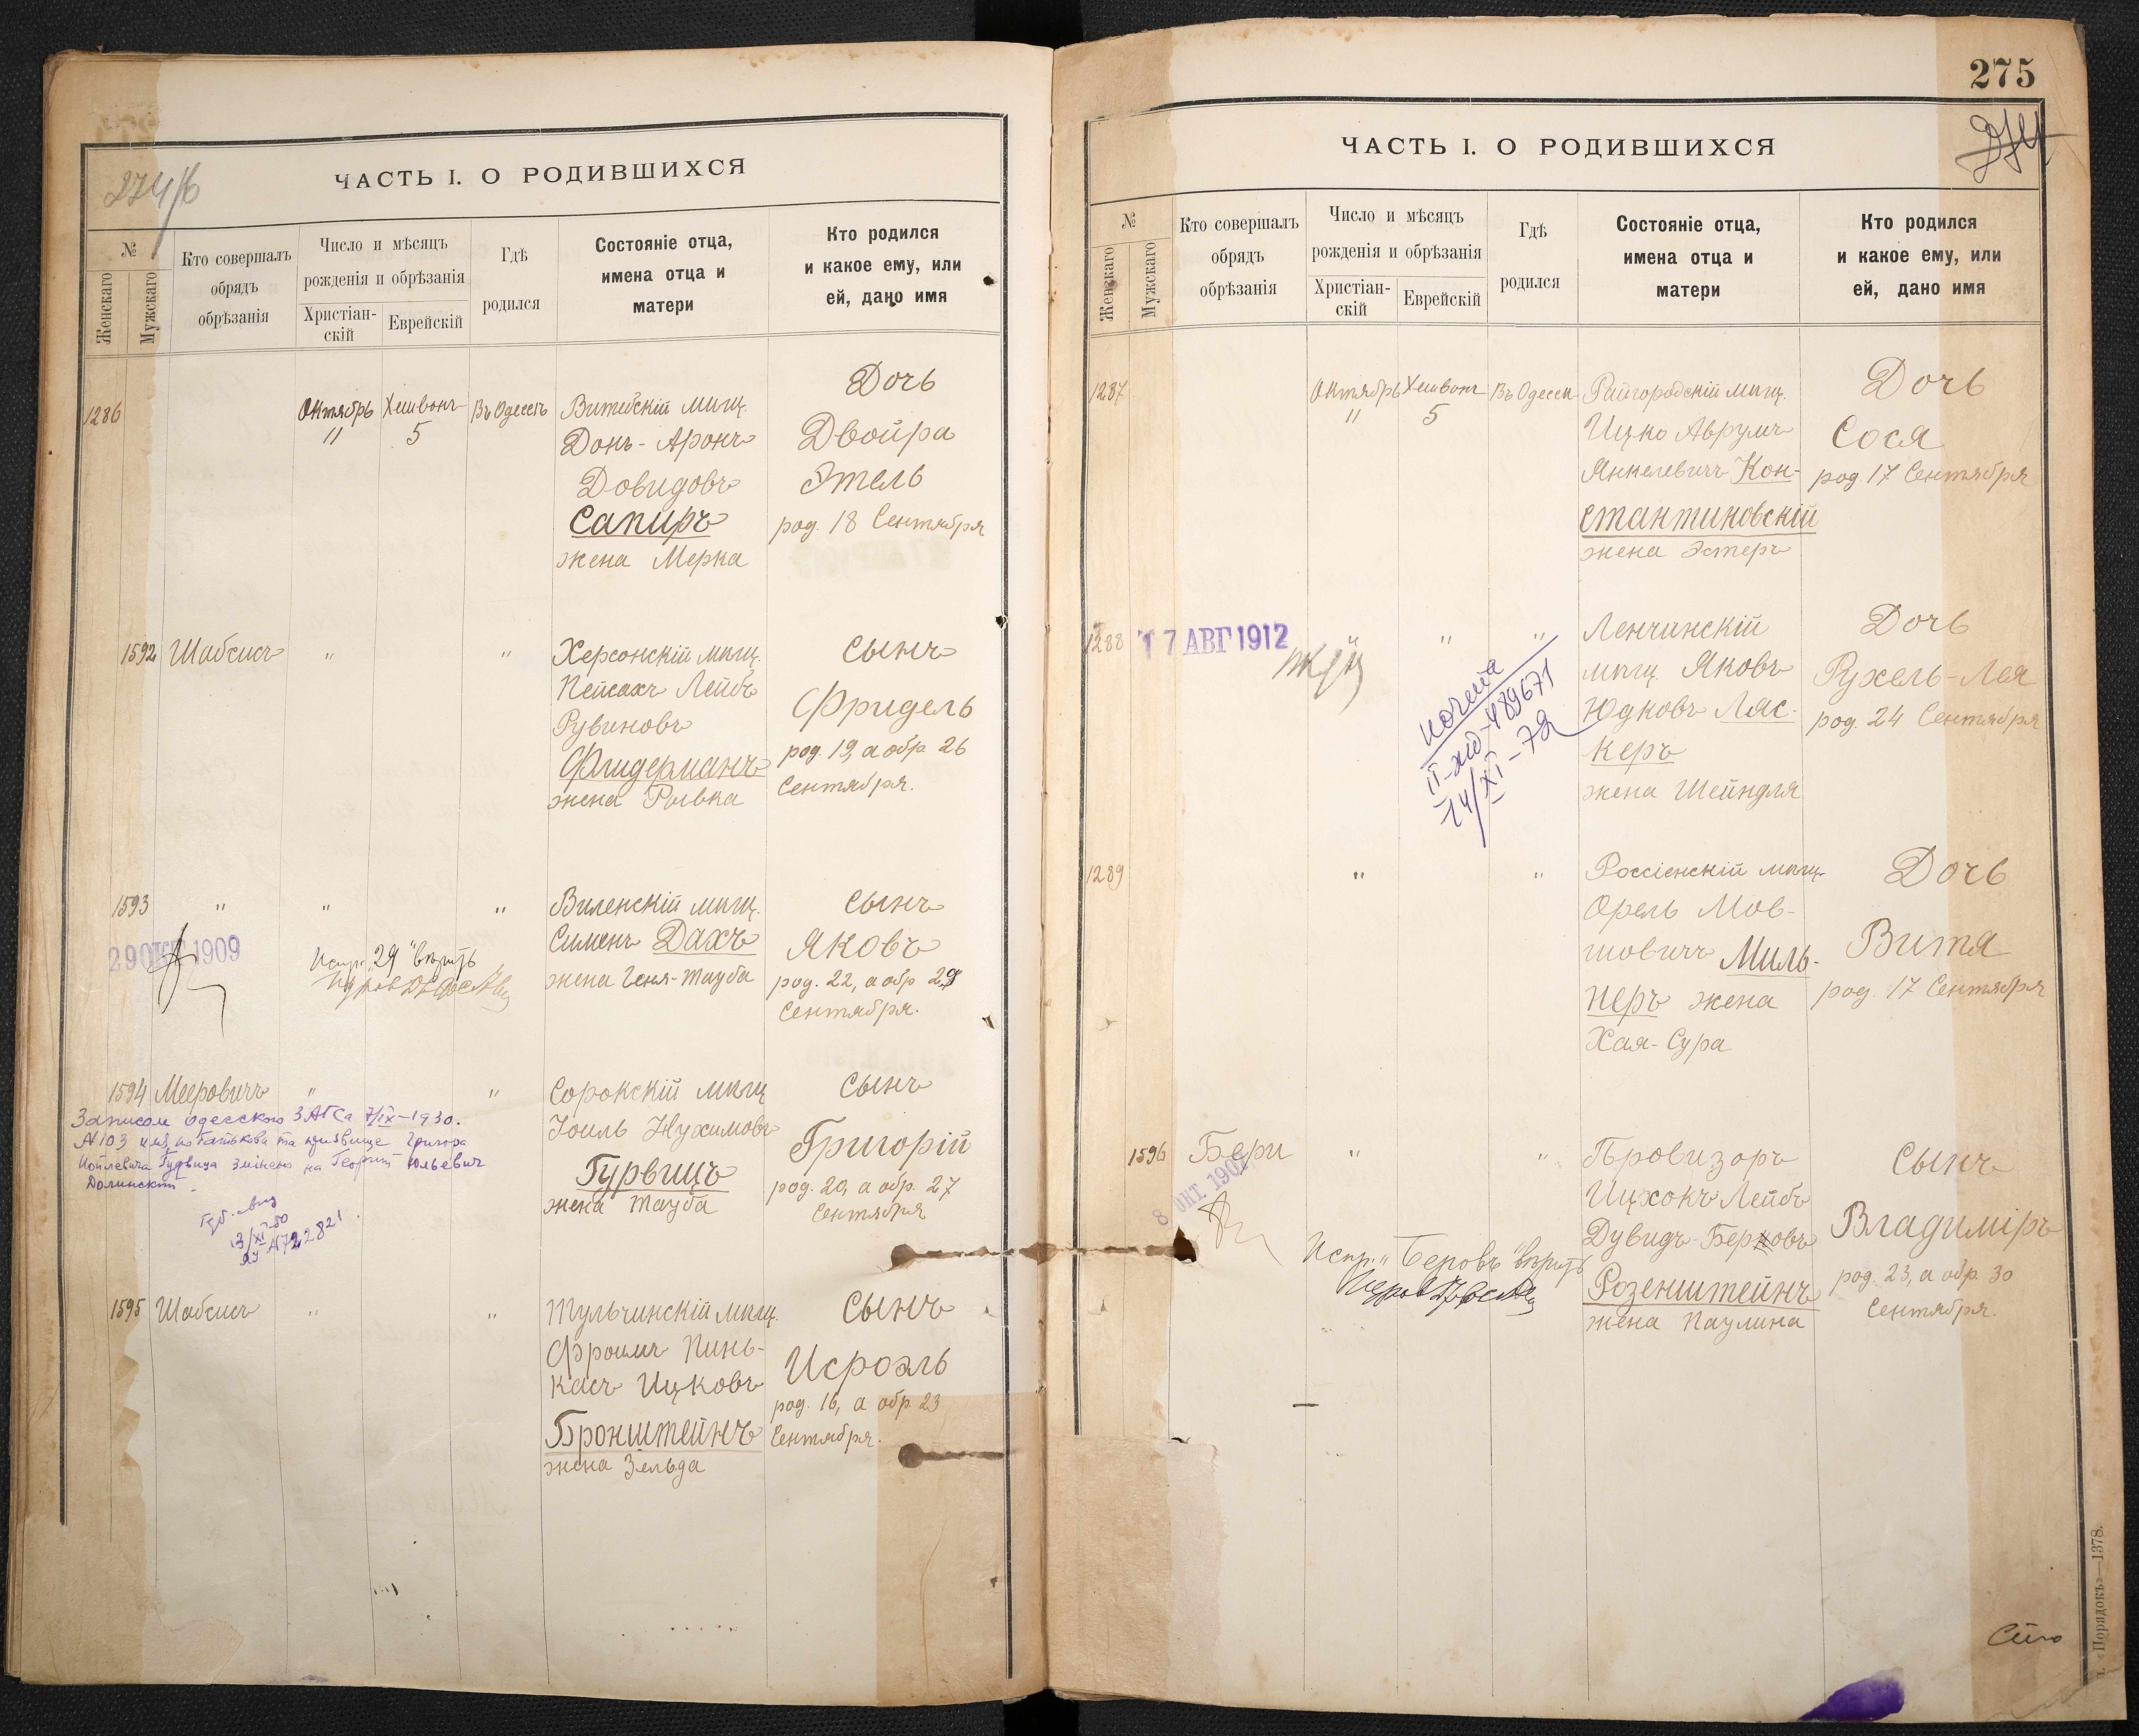 274/б
ЧАСТЬ I. О РОДИВШИХСЯ
№
Женскаго
Мужскаго
Кто совершалъ
обрядъ
обрѣзанія
Число и мѣсяцъ
рожденія и обрѣзанія
Христіан-
скій
Еврейскій
Гдѣ
родился
Состояніе отца,
имена отца и
матери
Кто родился
и какое ему, или
ей, дано имя
1286
Октябрь
11
Хешвонъ
5
Въ Одессѣ
Витебскій мѣщ.
Донъ-Аронъ
Довидовъ
Сапиръ
жена Мерка
Дочь
Двойра
Этель
род. 18 Сентября
1592 Шабсисъ " "
Херсонскій мѣщ.
Пейсахъ Лейбъ
Рувиновъ
Флидерманъ
жена Рывка
Сынъ
Фридель
род. 19, а обр 26
Сентября.
1593 " " "
29 ОКТ 1909
Испр. "29" вѣрить
Виленскій мѣщ.
Сименъ Дахъ
жена Геня-Тауба
Сынъ
Яковъ
род. 22, а обр 29
Сентября.
1594 Мееровичъ " "
Записом Одесского ЗАГСа 7/IX-1930.
N103 имя, по батькові та прізвище Григора
Иойлевича Гурвица змінено на Георгит Юльевич
Долинский.
3/XI-50
Сорокскій мѣщ
Іоиль Нухимовъ
Гурвицъ
жена Тауба
Сынъ
Григорій
род. 20, а обр. 27
Сентября
1595 Шабсисъ " "
Тульчинскій мѣщ.
Фроимъ Пинь-
касъ Ицковъ
Бронштейнъ
жена Зельда
Сынъ
Исроэль
род. 16, а обр 23
Сентября.
275
ЧАСТЬ I. О РОДИВШИХСЯ
№
Женскаго
Мужскаго
Кто совершалъ
обрядъ
обрѣзанія
Число и мѣсяцъ
рожденія и обрѣзанія
Христіан-
скій
Еврейскій
Гдѣ
родился
Состояніе отца,
имена отца и
матери
Кто родился
и какое ему, или
ей, дано имя
1287
Октябрь
11
Хешвонъ
5
Въ Одессѣ
Райгородскій мѣщ.
Ицко Аврумъ
Янкелевичъ Кон-
стантиновскій
жена Эстеръ
Дочь
Сося
род. 17 Сентября
1288
17 АВГ 1912
" " "
II-жд-489671
14/XI-72
Ленчинскій
мѣщ. Яковъ
Юдковъ Ляс-
керъ
жена Шейндля
Дочь
Рухель-Лея
род. 24 Сентября
1289 " "
Россіенскій мѣщ.
Орель Мов-
шовичъ Миль-
неръ жена
Хая-Сура
Дочь
Витя
род. 17 Сентября
1596 Бери " "
8 ОКТ. 190
Испр. "Беровъ" вѣрить
Провизоръ
Ицхокъ Лейбъ
Дувидъ-Беровъ
Розенштейнъ
жена Паулина
Сынъ
Владиміръ
род. 23, а обр. 30
Сентября.
т. «Порядокъ»—1378.